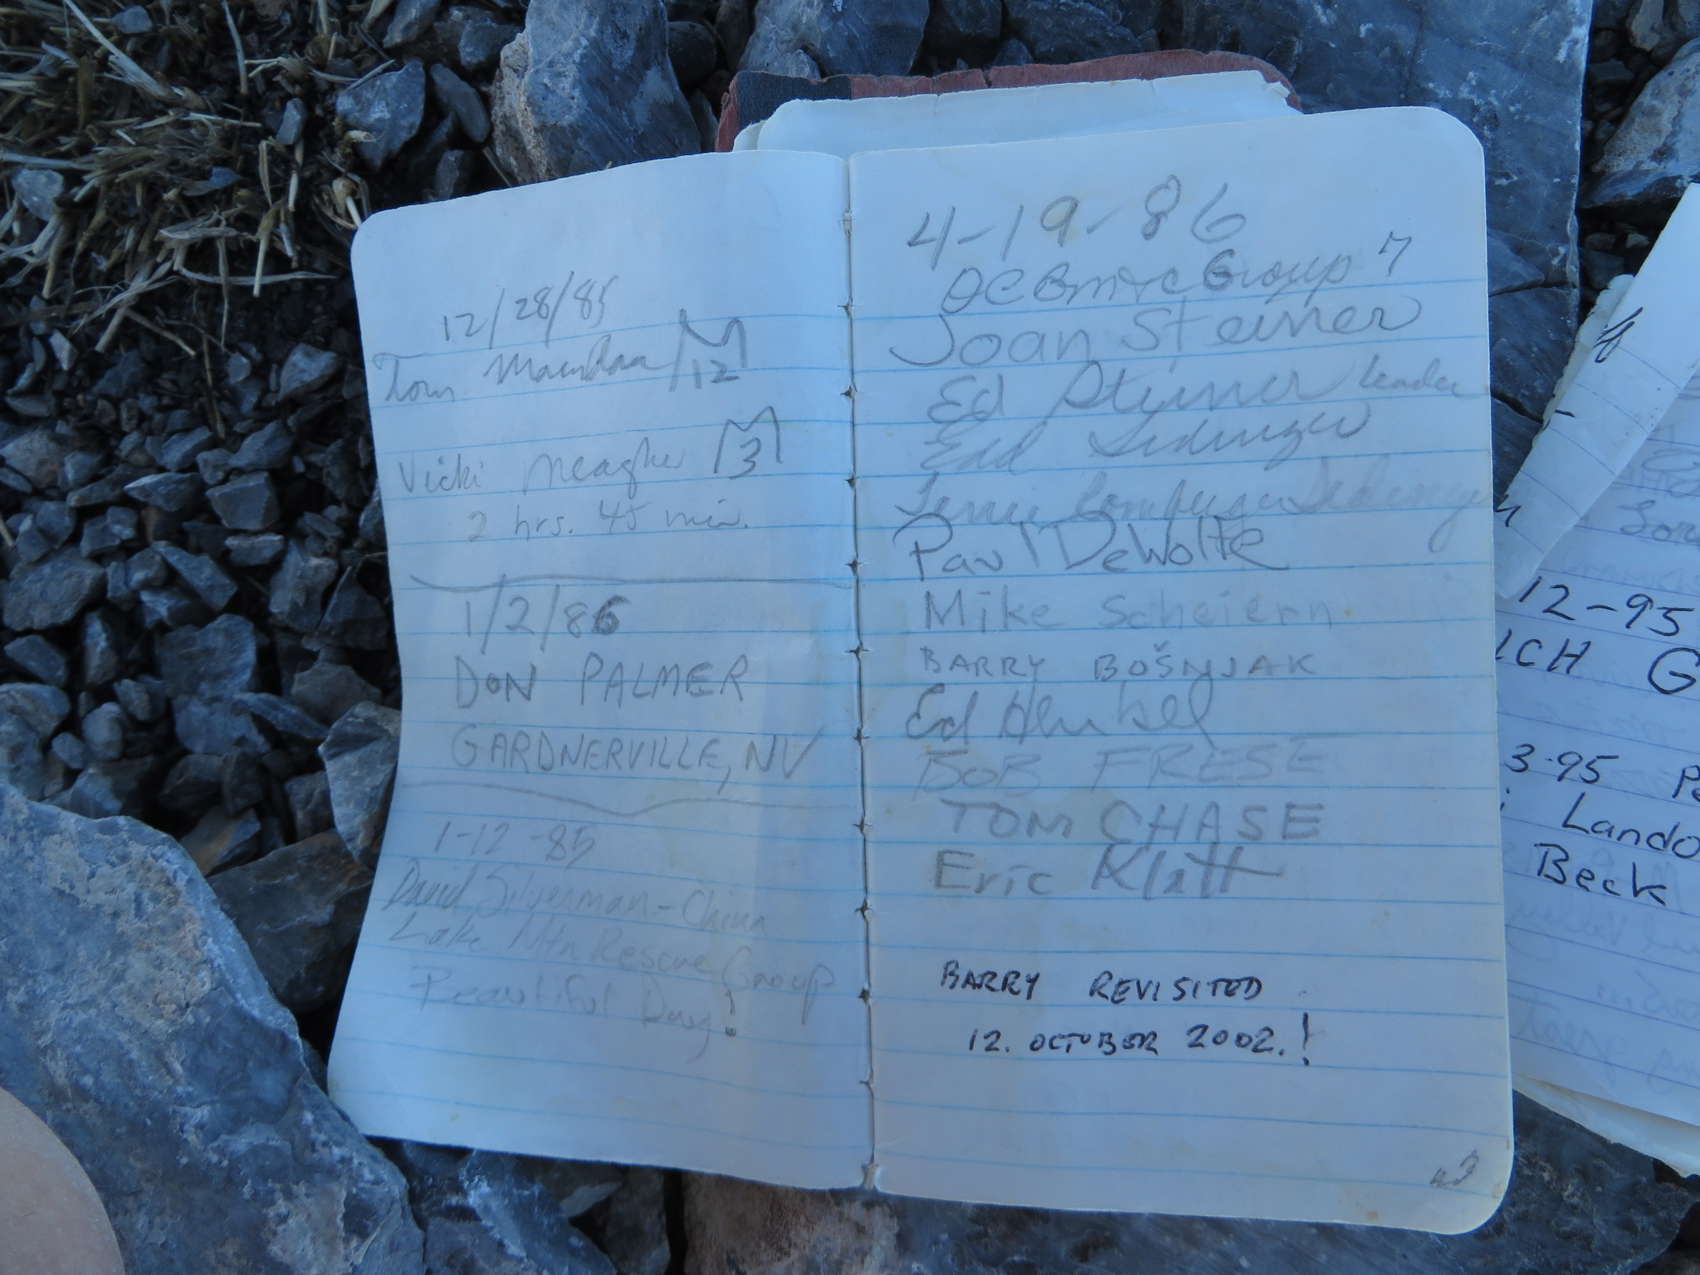 12/28/85
Tom
12
Vicki Meagher 3
2 hrs. 45 min.
1/2/86
DON PALMER
GARDNERVILLE, NV
1-12-85
David Silverman - China
Lake Mtn Rescue Group
Beautiful Day!
4-19-86
OC BMTC Group 7
Joan Steiner
Ed Steiner Leader
Edd
Paul DeWolfe
Mike Scheiern
BARRY BOŠNJAK
Ed Henkel
BOB FRESE
TOM CHASE
Eric Klatt
BARRY REVISITED
12. OCTOBER 2002.!
12-95
3-95
Lando
Beck